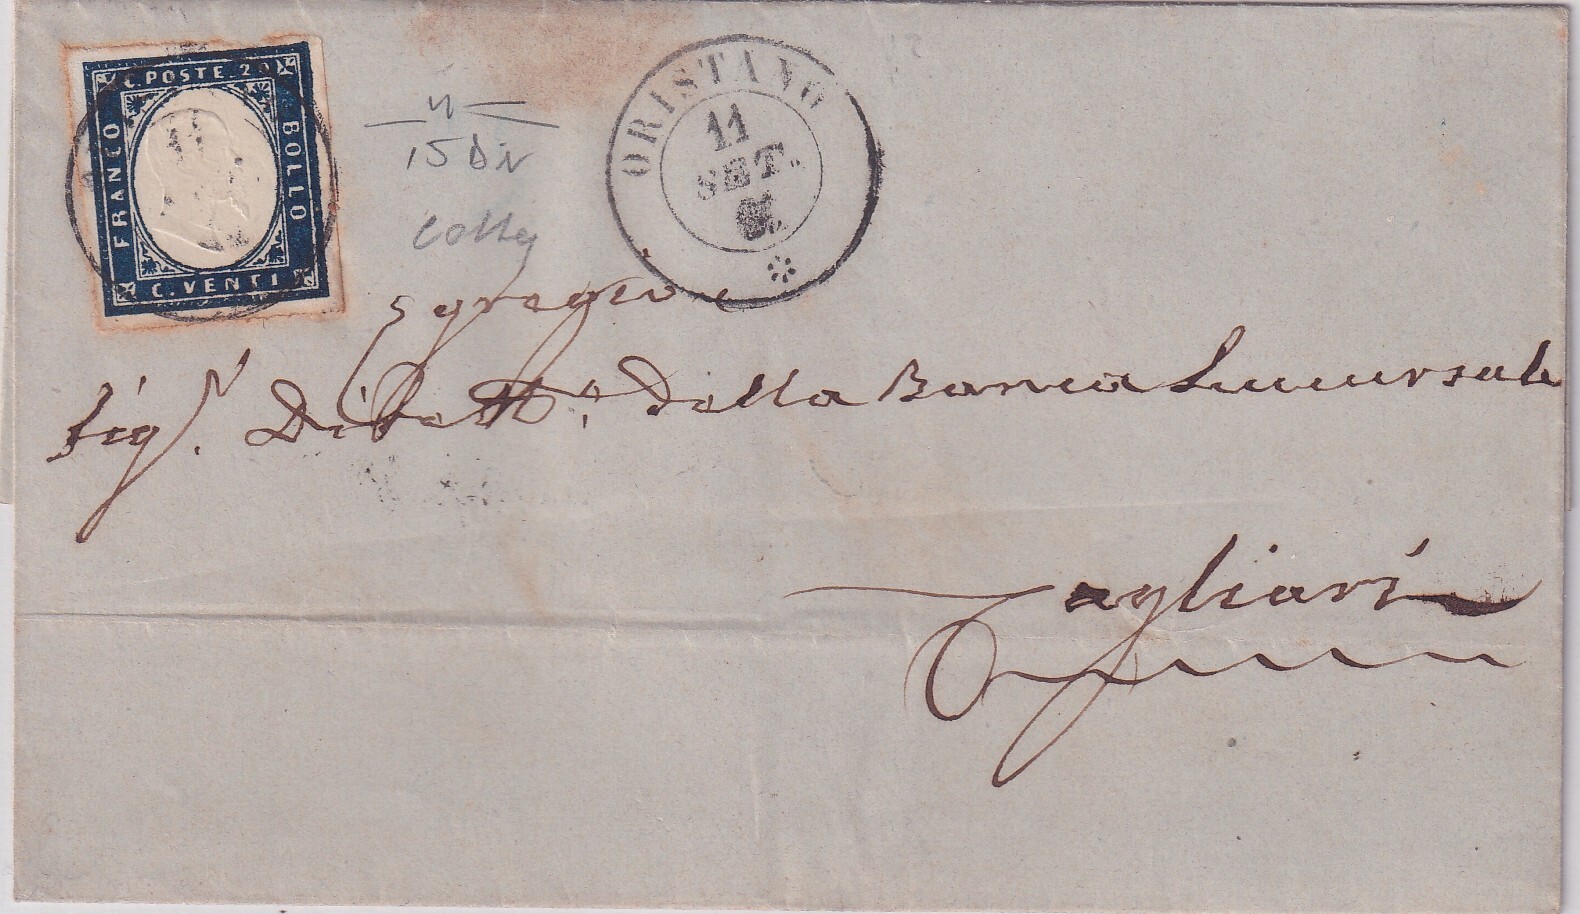 C. POSTE 20
FRANCO
BOLLO
C. VENTI
11
ORISTANO
11
SET.
15 Div
Egregio
Sig.r Dirett.e della Banca Succursale
Cagliari